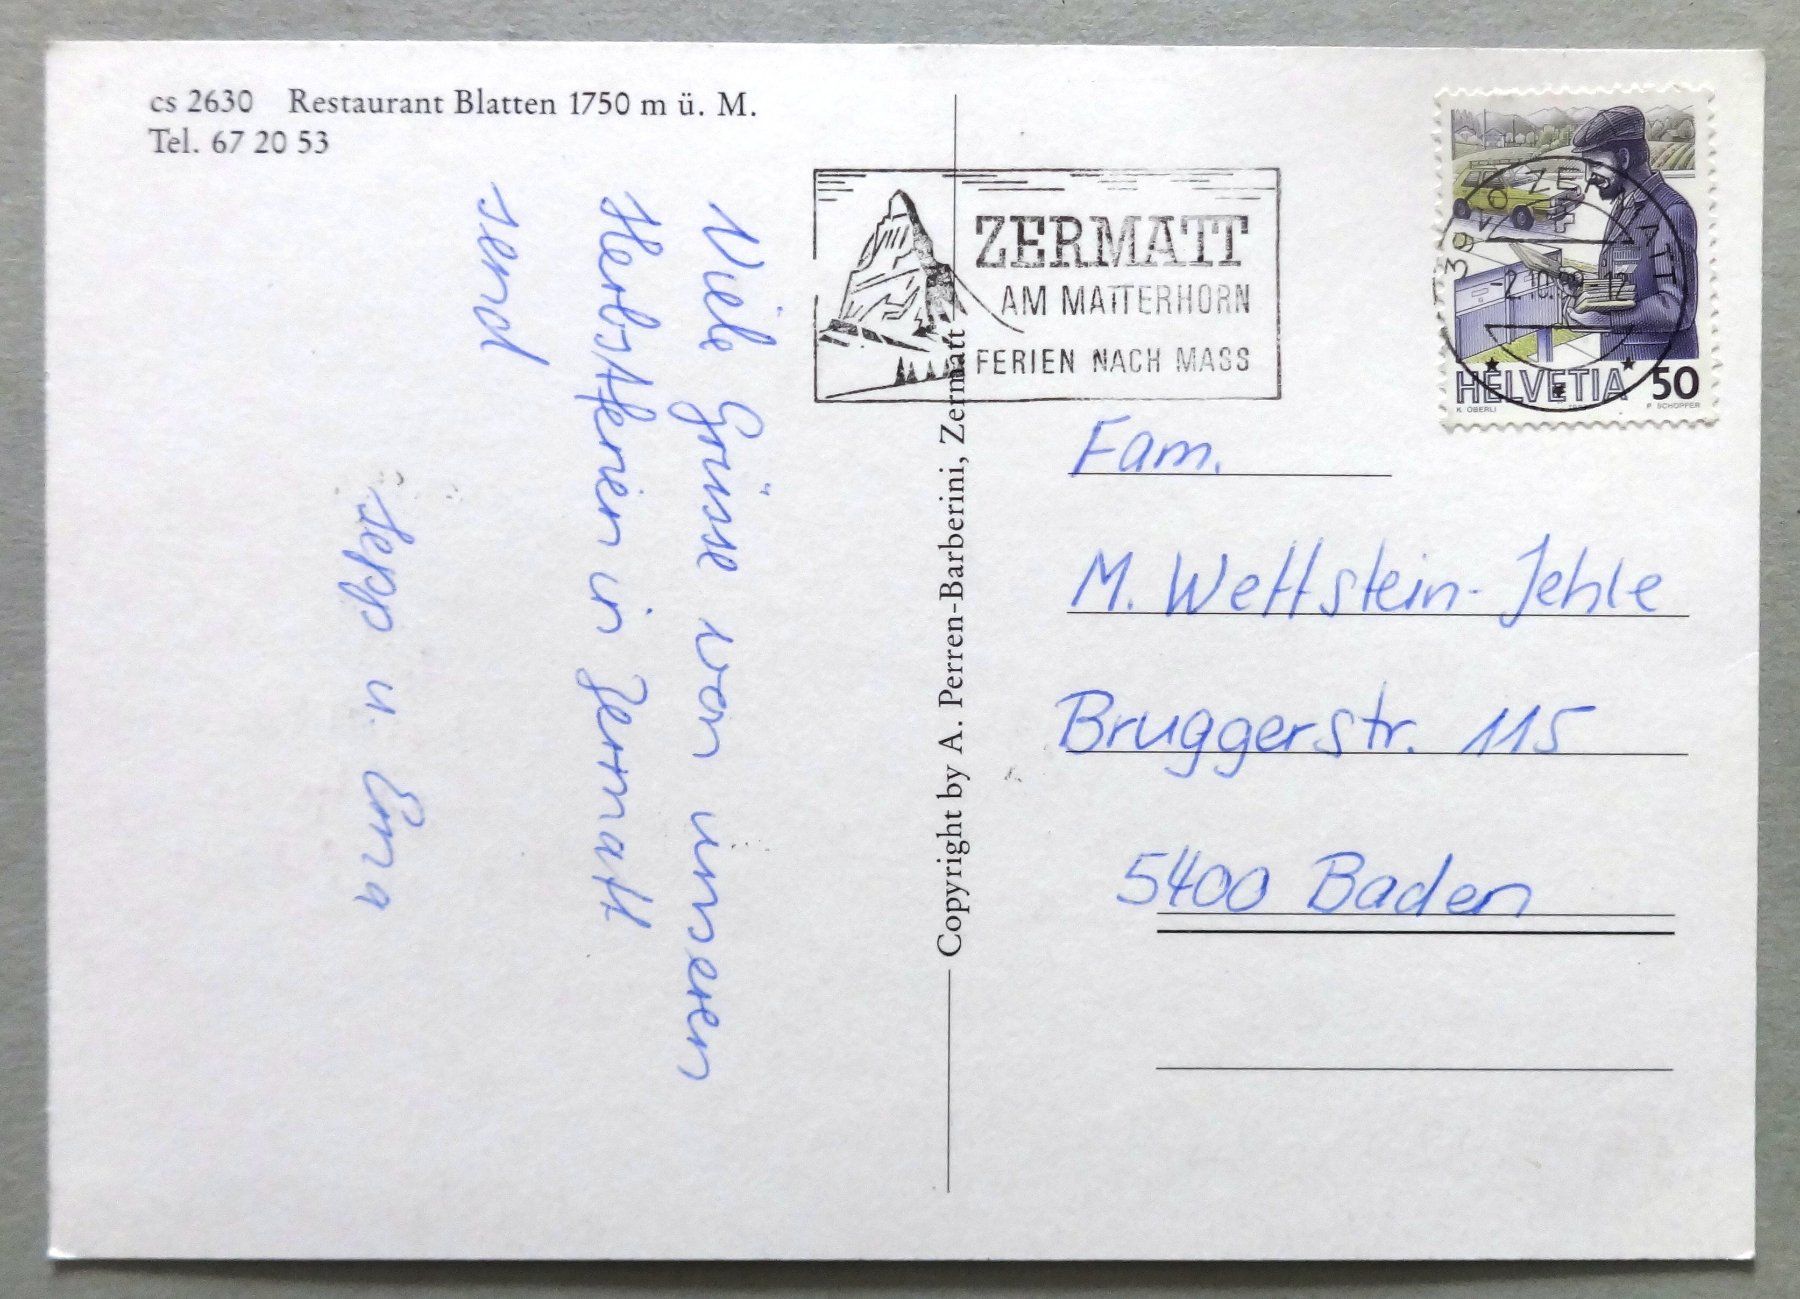 cs 2630 Restaurant Blatten 1750 m ü. M.
Tel. 67 20 53
Viele Grüsse von unseren
Herbstferien in Zermatt
send
Sepp u. Erna
Copyright by A. Perren-Barberini, Zermatt
ZERMATT
AM MATTERHORN
FERIEN NACH MASS
3920 ZERMATT
-2.10.89-12
HELVETIA 50
K. OBERLI
P. SCHOPFER
Fam.
M. Wettstein-Jehle
Bruggerstr. 115
5400 Baden